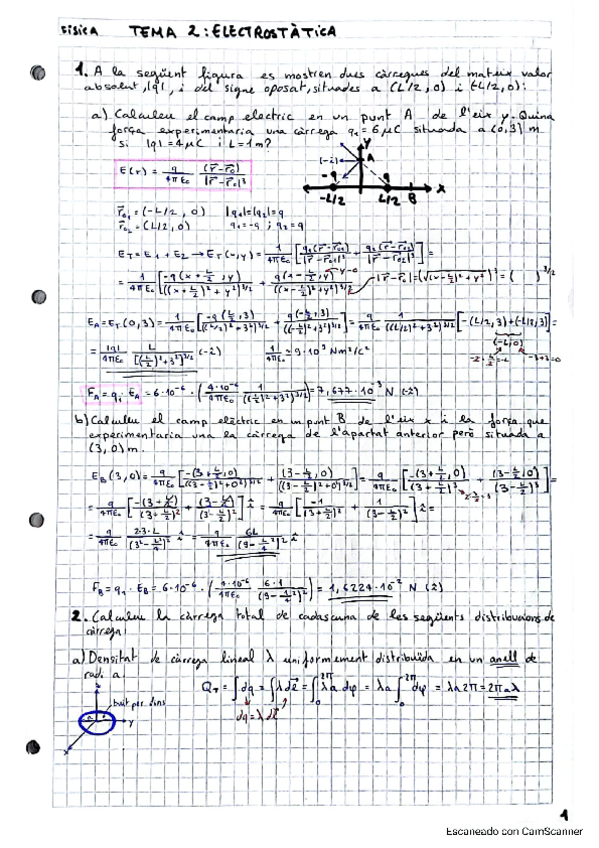 FÍSICA TEMA 2: ELECTROSTÀTICA
1. A la següent figura es mostren dues càrregues del mateix valor
absolut, |q|, i del signe oposat, situades a (L/2, 0) i (-L/2, 0):
a) Calculeu el camp electric en un punt A de l'eix y. Quina
força experimentaria una càrrega q₁ = 6 μC situada a (0,3) m
si |q| = 4 μC i L = 1 m?
y
(-i) A
-q q
-L/2 L/2 B x
E(r) = q/4πε₀ (r⃗-r⃗₀)/|r⃗-r⃗₀|³
r⃗₀₁ = (-L/2, 0) |q₁|=|q₂|=q
r⃗₀₂ = (L/2, 0) q₁=-q ; q₂=q
E_T = E₁ + E₂ → E_T(x,y) = 1/4πε₀ [q₁(r⃗-r⃗₀₁)/|r⃗-r⃗₀₁|³ + q₂(r⃗-r⃗₀₂)/|r⃗-r⃗₀₂|³] =
= 1/4πε₀ [-q(x+L/2, y)/((x+L/2)²+y²)^3/2 + q(x-L/2, y)/((x-L/2)²+y²)^3/2] y-0 |r⃗-r⃗₀| = (√(x-L/2)²+y²)³ = ( )^3/2
E_A = E_T(0,3) = 1/4πε₀ [-q(L/2, 3)/((L/2)²+3²)^3/2 + q(-L/2, 3)/((-L/2)²+3²)^3/2] = q/4πε₀ 1/((L/2)²+3²)^3/2 [-(L/2, 3)+(-L/2, 3)] =
(-L, 0)
-L/2-L/2=-L -3+3=0
= |q|/4πε₀ L/[(L/2)²+3²]^3/2 (-î) 1/4πε₀ = 9·10⁹ Nm²/C²
F_A = q₁·E_A = 6·10⁻⁶ · (4·10⁻⁶/4πε₀ 1/((1/2)²+3²)^3/2) = 7,677·10⁻³ N (-î)
b) Calculeu el camp elèctric en un punt B de l'eix x i la força que
experimentaria una la càrrega de l'apartat anterior però situada a
(3, 0) m.
E_B(3,0) = q/4πε₀ [-(3+L/2, 0)/((3+L/2)²+0²)^3/2 + (3-L/2, 0)/((3-L/2)²+0²)^3/2] = q/4πε₀ [-(3+L/2, 0)/(3+L/2)³ + (3-L/2, 0)/(3-L/2)³] =
= q/4πε₀ [-(3+L/2)/(3+L/2)³ + (3-L/2)/(3-L/2)³] î = q/4πε₀ [-1/(3+L/2)² + 1/(3-L/2)²] î =
= q/4πε₀ 2·3·L/(3²-L²/4)² î = q/4πε₀ 6L/(9-L²/4)² î
F_B = q₁·E_B = 6·10⁻⁶ · (4·10⁻⁶/4πε₀ 6·1/(9-1²/4)²) = 1,6224·10⁻² N (î)
2. Calculeu la càrrega total de cadascuna de les següents distribucions de
càrrega:
a) Densitat de càrrega lineal λ uniformement distribuïda en un anell de
radi a.
buit per dins
y
x
Q_T = ∫dq = ∫λdl⃗ = ∫₀^2π λa dφ = λa ∫₀^2π dφ = λa 2π = 2πaλ
dq = λ dl⃗
1
Escaneado con CamScanner